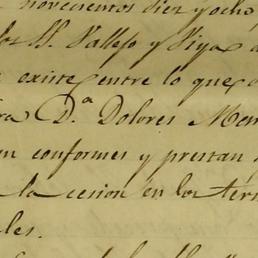 novecientos diez y ocho
los H. Vallejo y Viya
existe entre lo que
ra D.ª Dolores Mon
n conformes y prestan
la cesion en los tér
les.